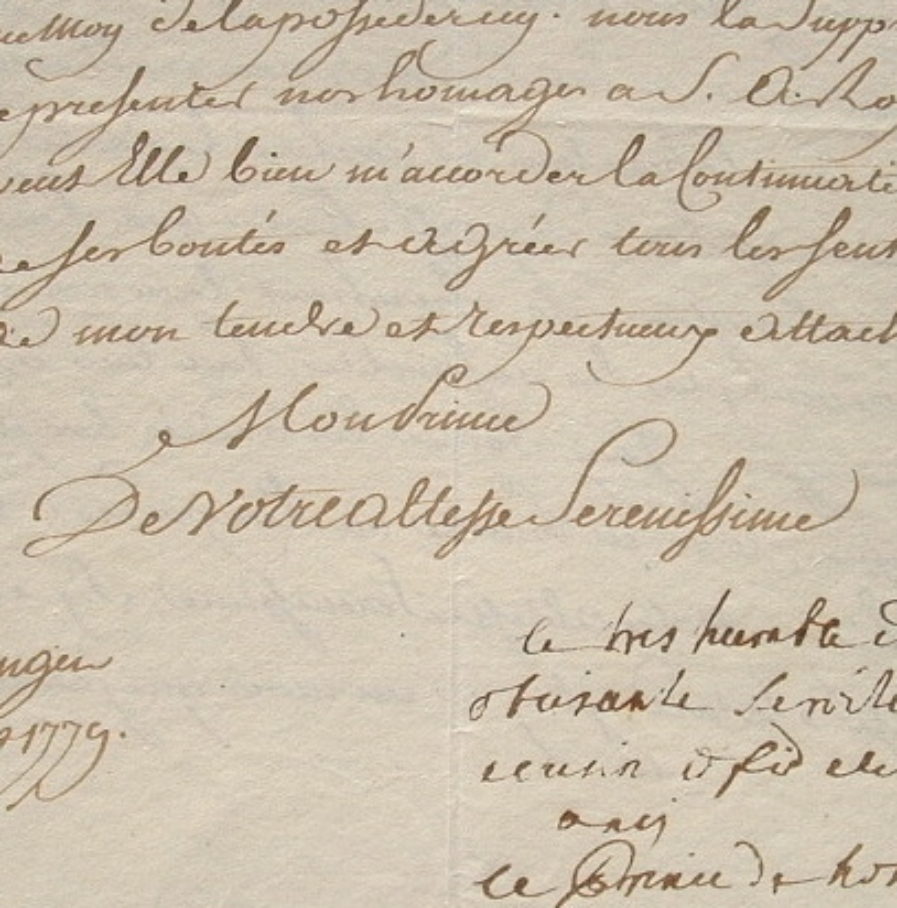 Moy de la posseder icy. nous la supp
presenter nos homages a S. A. Ro
veut Elle bien m'accorder la Continuati
de ses bontés et agréer tous les sent
de mon tendre et respectueux attach
Mon Prince
De Votre Altesse Serenissime
le tres humble
obeisante Servite
cousin et fidele
ami
ngen
1779.
le Prince de ho